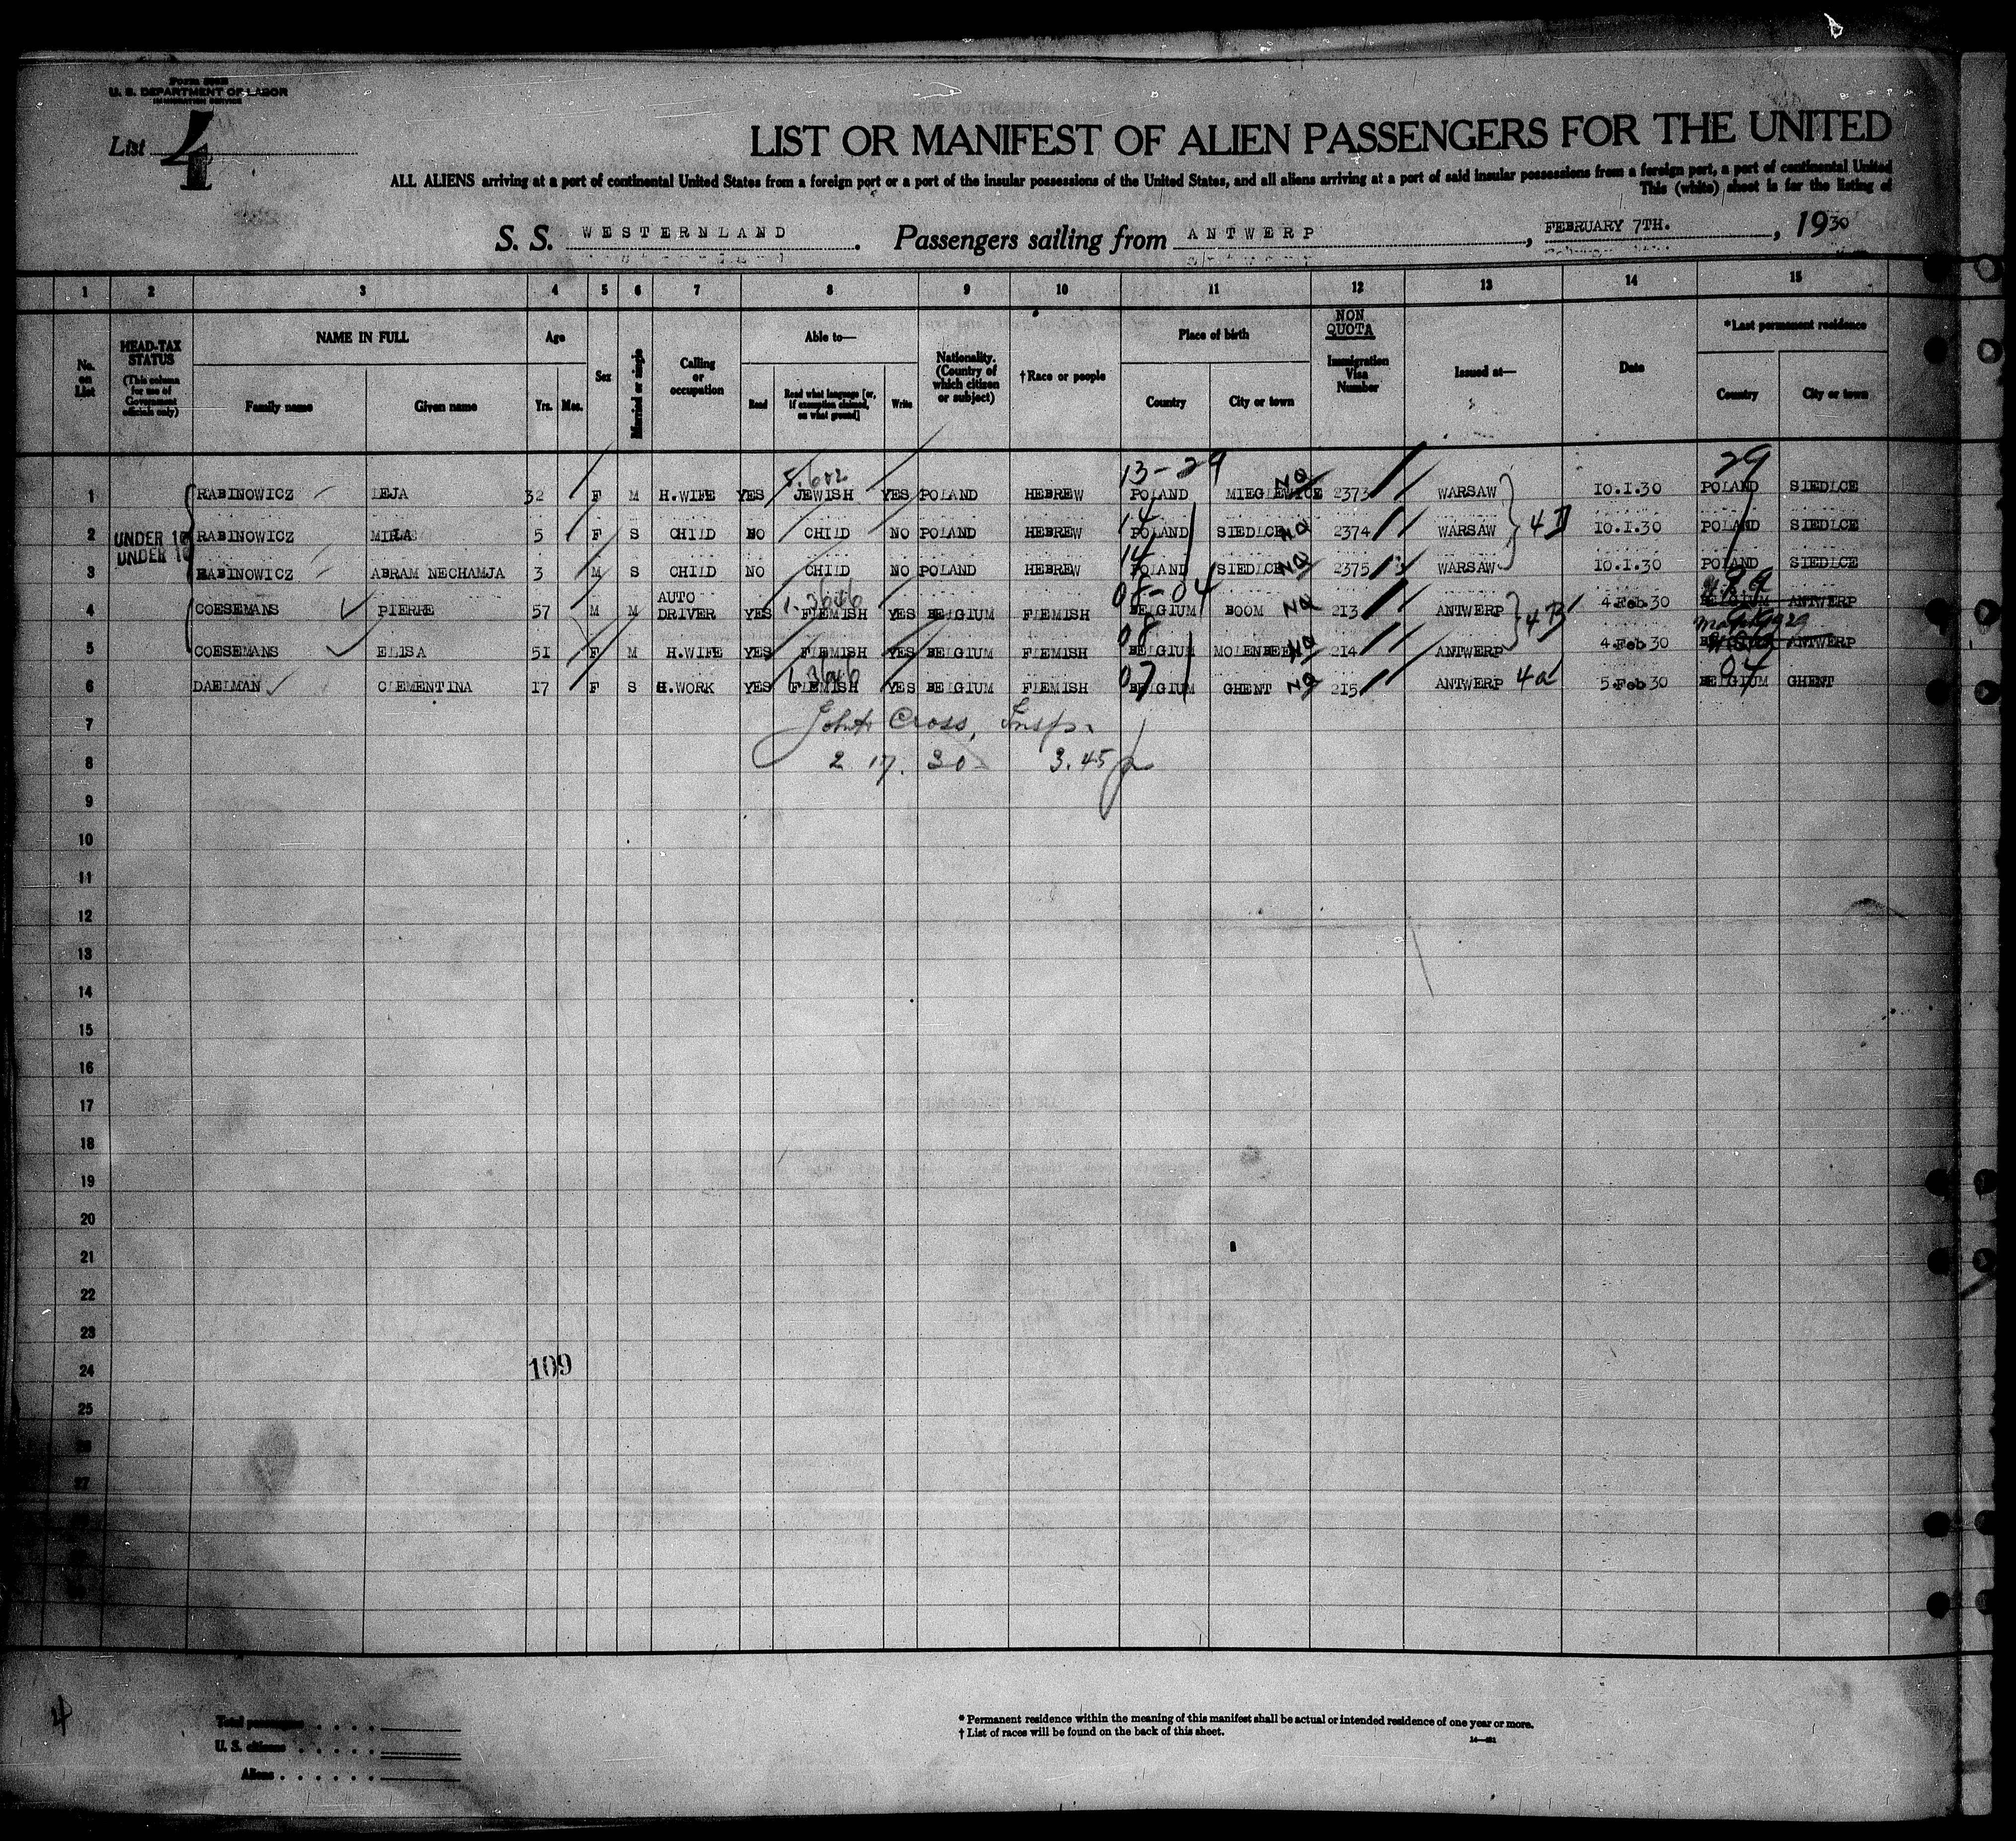 U. S. DEPARTMENT OF LABOR
IMMIGRATION SERVICE
List 4
LIST OR MANIFEST OF ALIEN PASSENGERS FOR THE UNITED
ALL ALIENS arriving at a port of continental United States from a foreign port or a port of the insular possessions of the United States, and all aliens arriving at a port of said insular possessions from a foreign port, a port of continental United
This (white) sheet is for the listing of
S. S. WESTERNLAND . Passengers sailing from ANTWERP , FEBRUARY 7TH. , 1930
1 2 3 4 5 6 7 8 9 10 11 12 13 14 15
No. on List
HEAD-TAX STATUS (This column for use of Government officials only)
NAME IN FULL
Family name Given name
Age
Yrs. Mos.
Sex
Married or single
Calling or occupation
Able to—
Read Read what language [or, if exemption claimed, on what ground] Write
Nationality. (Country of which citizen or subject)
†Race or people
Place of birth
Country City or town
NON QUOTA
Immigration Visa Number
Issued at—
Date
*Last permanent residence
Country City or town
5.602 13-29 29
1 RABINOWICZ LEJA 32 F M H.WIFE YES JEWISH YES POLAND HEBREW POLAND NQ 2373 WARSAW 10.I.30 POLAND SIEDLCE
2 UNDER 16 RABINOWICZ 5 F S CHILD NO CHILD NO POLAND HEBREW 14 POLAND SIEDLCE NQ 2374 WARSAW 4D 10.I.30 POLAND SIEDLCE
UNDER 16
3 RABINOWICZ ABRAM NECHAMJA 3 M S CHILD NO CHILD NO POLAND HEBREW 14 POLAND SIEDLCE NQ 2375 WARSAW 10.I.30 POLAND SIEDLCE
1-3646 08-04
4 COESEMANS PIERRE 57 M M AUTO DRIVER YES FLEMISH YES BELGIUM FLEMISH BELGIUM BOOM NQ 213 ANTWERP 4B 4.Feb.30 BELGIUM ANTWERP
08
5 COESEMANS ELISA 51 F M H.WIFE YES FLEMISH YES BELGIUM FLEMISH BELGIUM MOLENBEEK NQ 214 ANTWERP 4.Feb.30 ANTWERP
1.3646 07 04
6 DAELMAN CLEMENTINA 17 F S H.WORK YES FLEMISH YES BELGIUM FLEMISH BELGIUM GHENT NQ 215 ANTWERP 4a 5.Feb.30 BELGIUM GHENT
7 John Cross, Insp.
8 2 17. 30 3.45 p
9
10
11
12
13
14
15
16
17
18
19
20
21
22
23
24 109
25
26
27
4
Total passengers
U. S. citizens
Aliens
* Permanent residence within the meaning of this manifest shall be actual or intended residence of one year or more.
† List of races will be found on the back of this sheet.